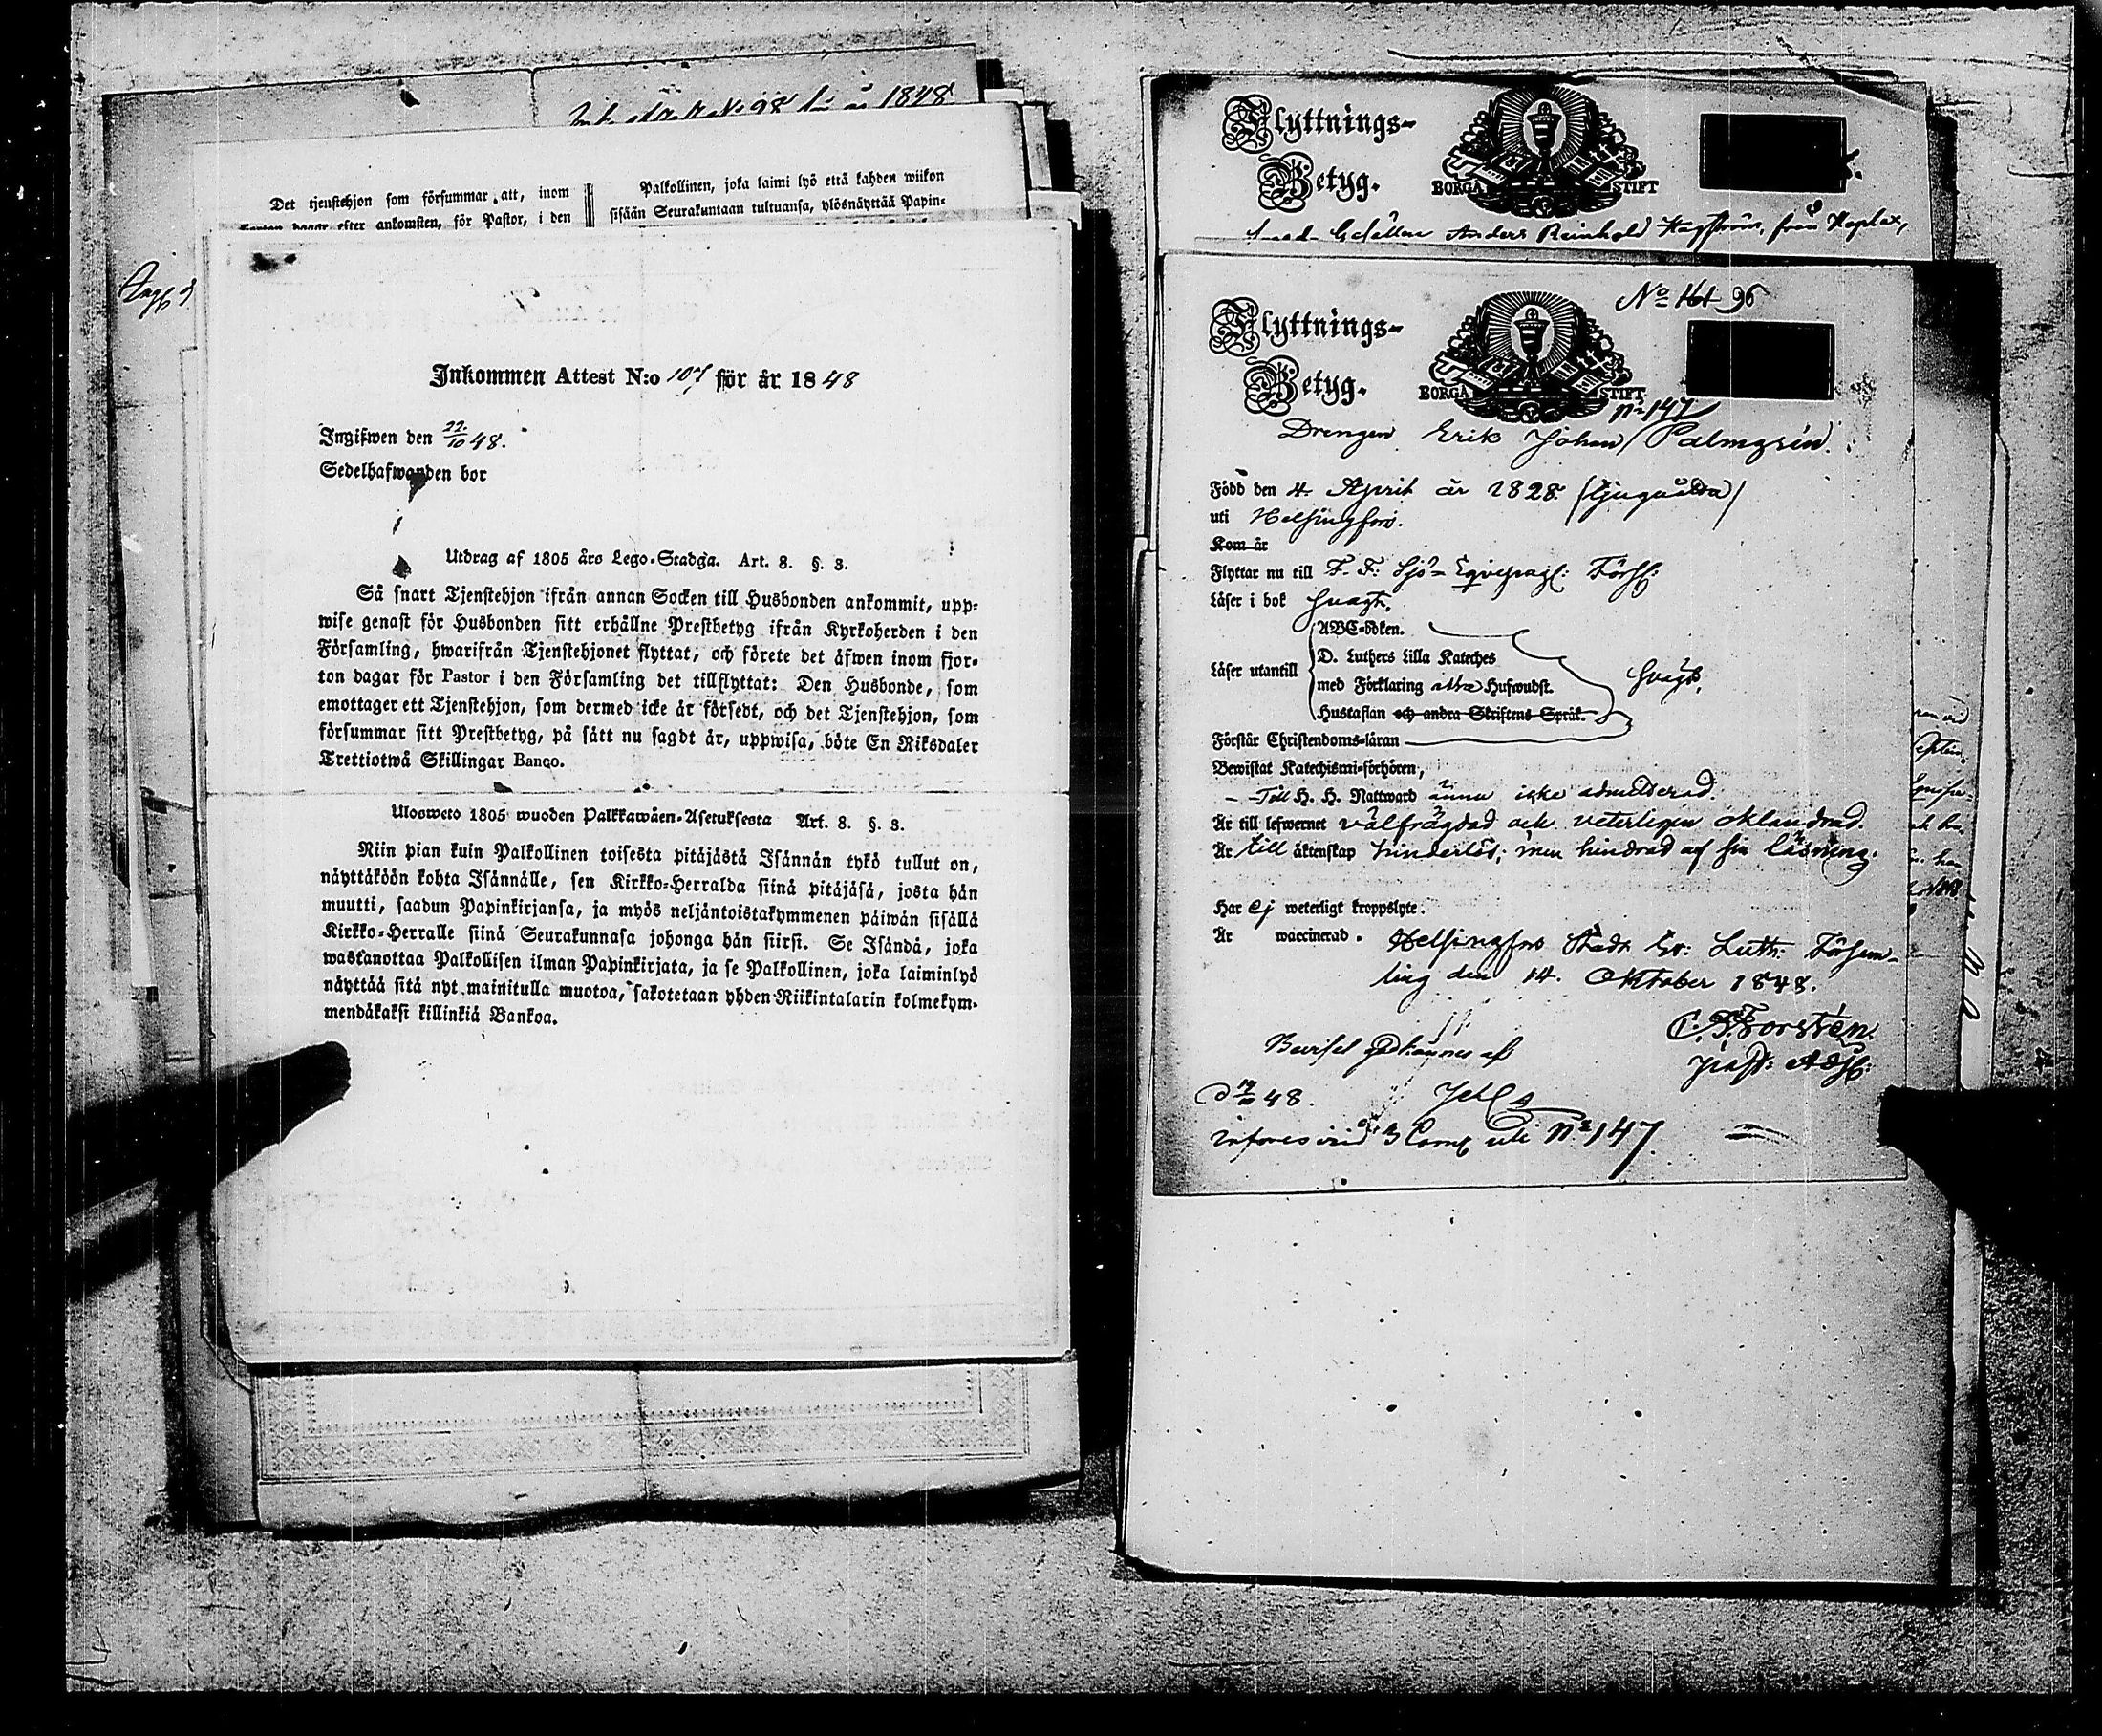 år 1848
Det tjenstehjon som försummar att, inom
efter ankomsten, för Pastor, i den
Palkollinen, joka laimi lyö että kahden wiikon
sisään Seurakuntaan tultuansa, ylösnäyttää Papin-
Inkommen Attest N:o 107 för år 1848
Ingifwen den 22/10 48.
Sedelhafwanden bor
Utdrag af 1805 års Lego-Stadga. Art. 8. §. 3.
Så snart Tjenstehjon ifrån annan Socken till Husbonden ankommit, upp-
wise genast för Husbonden sitt erhållne Prestbetyg ifrån Kyrkoherden i den
Församling, hwarifrån Tjenstehjonet flyttat, och förete det äfwen inom fjor-
ton dagar för Pastor i den Församling det tillflyttat: Den Husbonde, som
emottager ett Tjenstehjon, som dermed icke är försedt, och det Tjenstehjon, som
försummar sitt Prestbetyg, på sätt nu sagdt är, uppwisa, böte En Riksdaler
Trettiotwå Skillingar Banco.
Ulosweto 1805 wuoden Palkkawäen-Asetuksesta Art. 8. §. 3.
Niin pian kuin Palkollinen toisesta pitäjästä Isännän tykö tullut on,
näyttäköön kohta Isännälle, sen Kirkko-Herralda siinä pitäjäsä, josta hän
muutti, saadun Papinkirjansa, ja myös neljäntoistakymmenen päiwän sisällä
Kirkko-Herralle siinä Seurakunnasa johonga hän siirsi. Se Isändä, joka
wastanottaa Palkollisen ilman Papinkirjata, ja se Palkollinen, joka laiminlyö
näyttää sitä nyt mainitulla muotoa, sakotetaan yhden Riikintalarin kolmekym-
mendäkaksi killinkiä Bankoa.
Flyttnings-
Betyg.
BORGÅ STIFT
Gesällen Anders Reinhold Hagström, från Hoplax,
No 161 96
Flyttnings-
Betyg.
BORGÅ STIFT
No 147
Drengen Erik Johan Palmgrén.
Född den 4. April år 1828. (tjuguåtta)
uti Helsingfors.
Kom år
Flyttar nu till F. F. Sjö-Eqvipagl: Förs:
Läser i bok svagt,
ABC-boken.
D. Luthers Lilla Kateches
Läser utantill
med Förklaring Hufwudst.
svagt,
Hustaflan och andra Skriftens Språk.
Förstår Christendoms-läran
Bewistat Katechismi-förhören,
Till H. H. Nattward ännu icke admitterad.
Är till lefwernet välfrägdad och veterligen oklandrad.
Är till äktenskap hinderlös; men hindrad af sin läsning.
Har ej weterligt kroppslyte.
Är waccinerad. Helsingfors Stads Ev: Luth: Försam-
ling den 14. Oktober 1848.
C. Forstén.
Past: Adj:
Beviset godkännes af
d 17/10 48.
införes vid 3 Comp uti No 147.